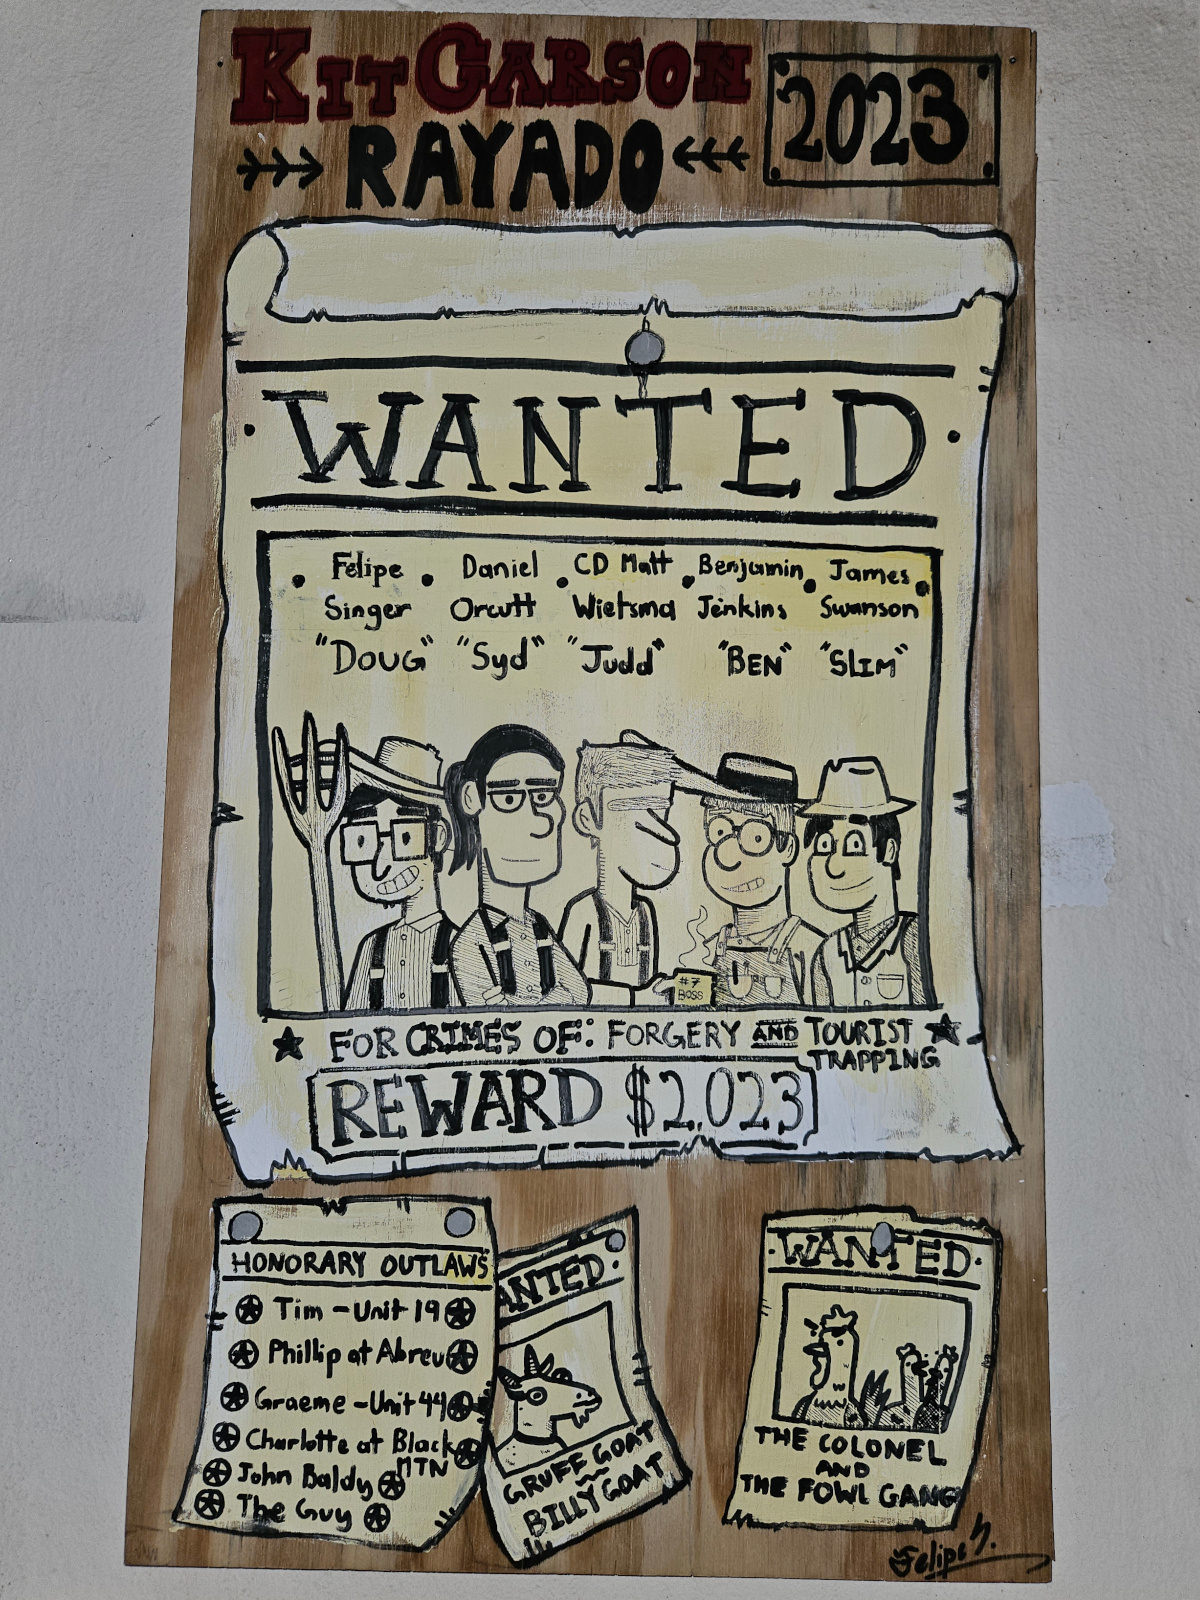 KIT CARSON
RAYADO
2023
WANTED
Felipe Singer "DOUG"
Daniel Orcutt "Syd"
CD Matt Wietsma "Judd"
Benjamin Jenkins "BEN"
James Swanson "SLIM"
#7
BOSS
FOR CRIMES OF: FORGERY AND TOURIST
TRAPPING
REWARD $2,023
HONORARY OUTLAWS
Tim - Unit 19
Phillip at Abreu
Graeme - Unit 44
Charlotte at Black
MTN
John Baldy
The Guy
ANTED
GRUFF GOAT
BILLY GOAT
WANTED
THE COLONEL
AND
THE FOWL GANG
Felipe S.